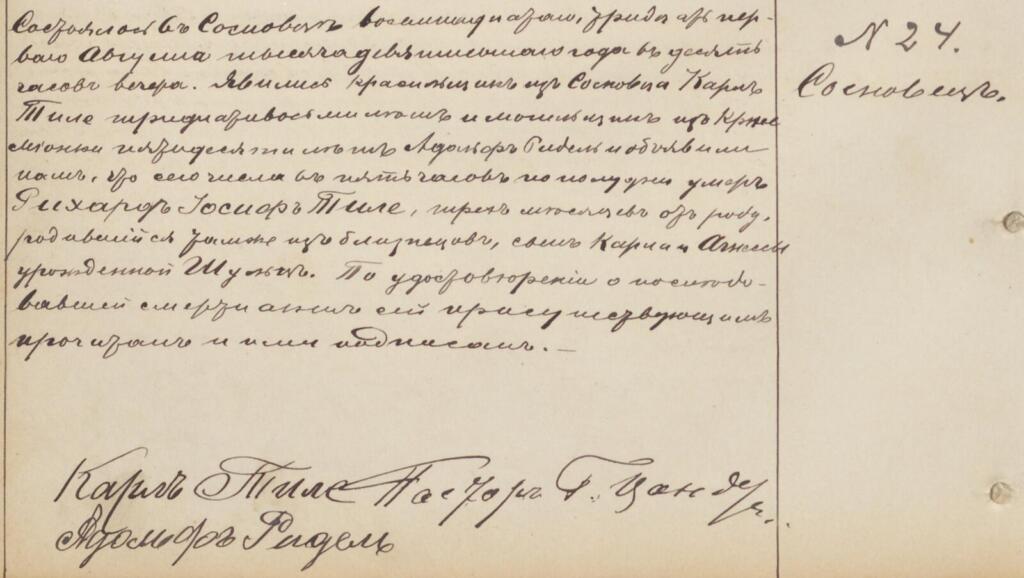 Состоялось въ Сосновцѣ восемнадцатаго, тридцать пер-
ваго Августа тысяча девятисотаго года въ десять
часовъ вечера. Явились красильщикъ изъ Сосновца Карлъ
Тиле тридцативосьми лѣтъ и могильщикъ изъ
пятидесяти лѣтъ Адольфъ Ридель и объявили
намъ, что сего числа въ пять часовъ по полудни умеръ
Рихардъ Іосифъ Тиле, трехъ мѣсяцевъ отъ роду,
родившійся тамже изъ близнецовъ, сынъ Карла и Агнесы
урожденной Шульцъ. По удостовѣреніи о послѣдо-
вавшей смерти актъ сей присутствующимъ
прочитанъ и ими подписанъ. —
Карлъ Тиле Пасторъ Г. Цандеръ.
Адольфъ Ридель
N 24.
Сосновецъ.